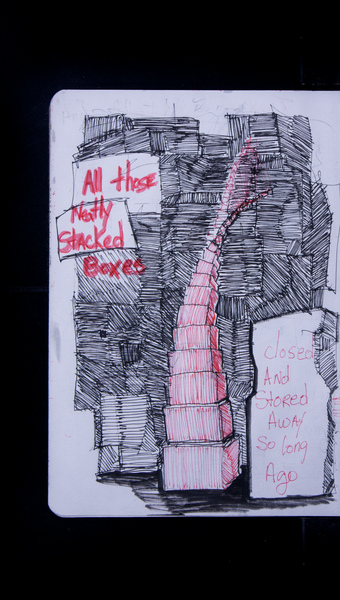 All those
Neatly
Stacked
Boxes
closed
AND
Stored
AWAY
So long
Ago